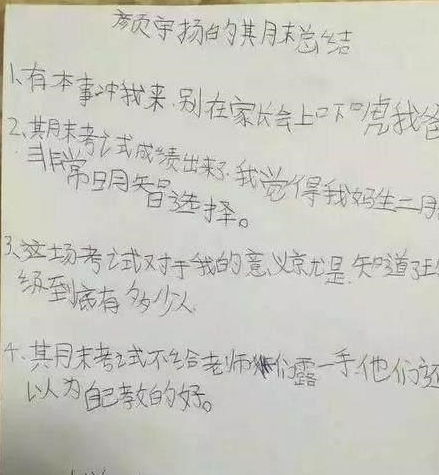 颜宇扬的期末总结
1、有本事冲我来.别在家长会上吓唬我爸
2、期末考试成绩出来了.我觉得我妈生二
非常明智选择。
3、这场考试对于我的意义就是.知道了
级到底有多少人.
4、期末考试不给老师们露一手.他们还
以为自己教的好。